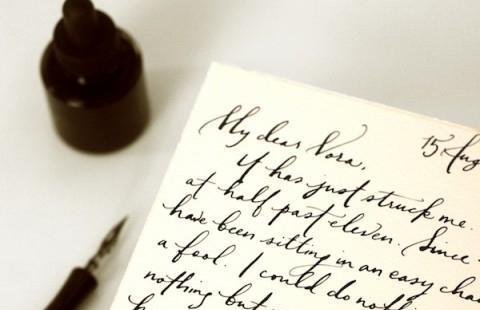 My dear Nora, 15 Aug
It has just struck me.
at half past eleven. Since
have been sitting in an easy chai
a fool. I could do nothi
nothing but